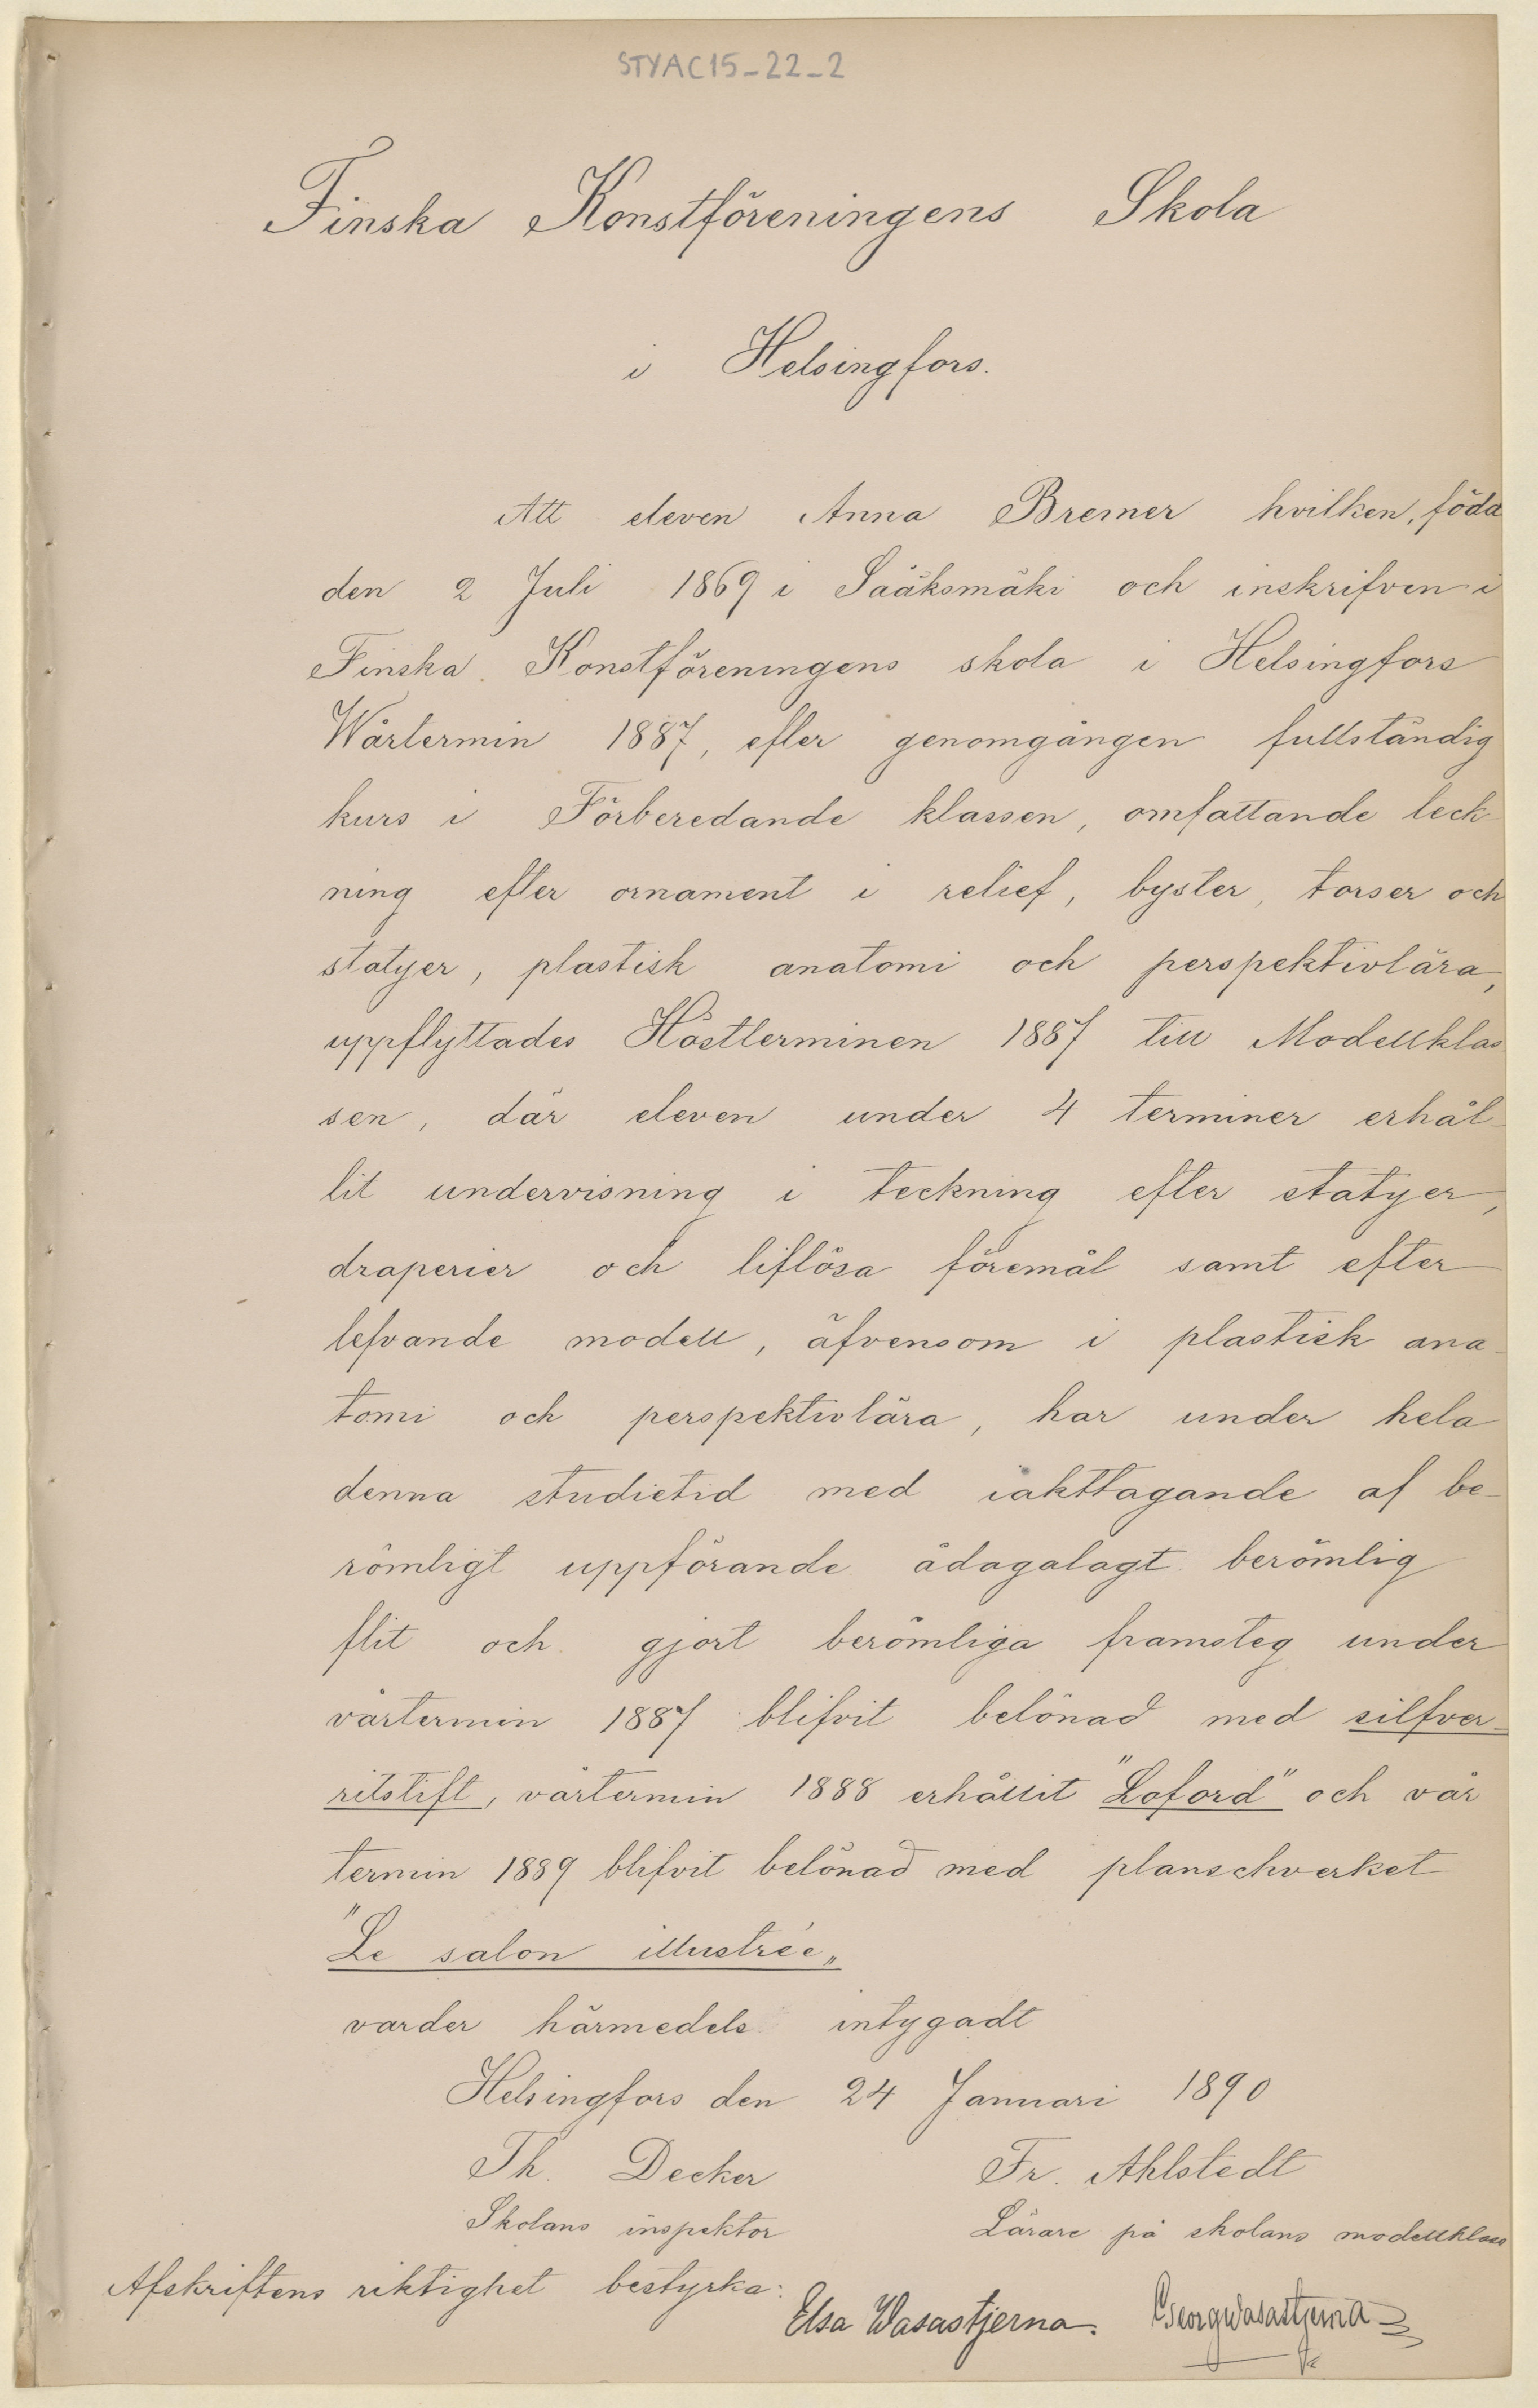 STYAC15-22-2
Finska Konstföreningens Skola
i Helsingfors.
Att eleven Anna Bremer hvilken, föda
den 2 Juli 1869 i Sääksmäki och inskrifven i
Finska Konstföreningens skola i Helsingfors
Wårtermin 1887, efter genomgången fullständig
kurs i Förberedande klassen, omfattande teck
ning efter ornament i relief, byster, torser och
statyer, plastisk anatomi och perspektivlära,
uppflyttades Höstterminen 1887 till Modellklas
sen, där eleven under 4 terminer erhål-
lit undervisning i teckning efter statyer,
draperier och liflösa föremål samt efter
lefvande modell, äfvensom i plastisk ana-
tomi och perspektivlära, har under hela
denna studietid med iakttagande af be-
römligt uppförande ådagalagt berömlig
flit och gjort berömliga framsteg under
vårtermin 1887 blifvit belönad med silfver-
ritstift, vårtermin 1888 erhållit "Loford" och vår
termin 1889 blifvit belönad med planschverket
"Le salon illustrée„
varder härmedels intygadt
Helsingfors den 24 Januari 1890
Th. Decker Fr. Ahlstedt
Skolans inspektor Lärare på skolans modellklass
Afskriftens riktighet bestyrka:
Elsa Wasastjerna. Georg Wasastjerna